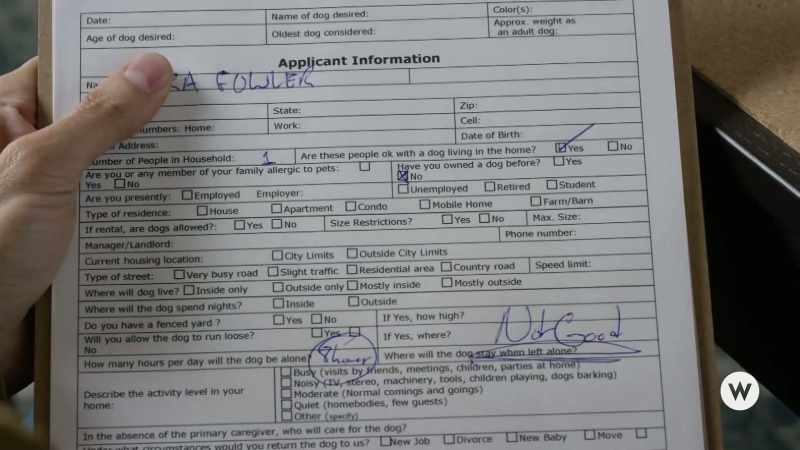 Date: Name of dog desired: Color(s):
Age of dog desired: Oldest dog considered: Approx. weight as an adult dog:
Applicant Information
FOWLER
State: Zip:
Numbers: Home: Work: Cell:
Address: Date of Birth:
Number of People in Household: 1 Are these people ok with a dog living in the home? Yes No
Are you or any member of your family allergic to pets: Have you owned a dog before? Yes
Yes No No
Are you presently: Employed Employer: Unemployed Retired Student
Type of residence: House Apartment Condo Mobile Home Farm/Barn
If rental, are dogs allowed?: Yes No Size Restrictions? Yes No Max. Size:
Manager/Landlord: Phone number:
Current housing location: City Limits Outside City Limits
Type of street: Very busy road Slight traffic Residential area Country road Speed limit:
Where will dog live? Inside only Outside only Mostly inside Mostly outside
Where will the dog spend nights? Inside Outside
Do you have a fenced yard ? Yes No If Yes, how high? Not Good
Will you allow the dog to run loose? Yes If Yes, where?
No
How many hours per day will the dog be alone Where will the dog stay whm left alone?
Describe the activity level in your home:
Busy (visits by friends, meetings, children, parties at home)
Noisy (TV, stereo, machinery, tools, children playing, dogs barking)
Moderate (Normal comings and goings)
Quiet (homebodies, few guests)
Other (specify)
In the absence of the primary caregiver, who will care for the dog?
Under what circumstances would you return the dog to us? New Job Divorce New Baby Move
W